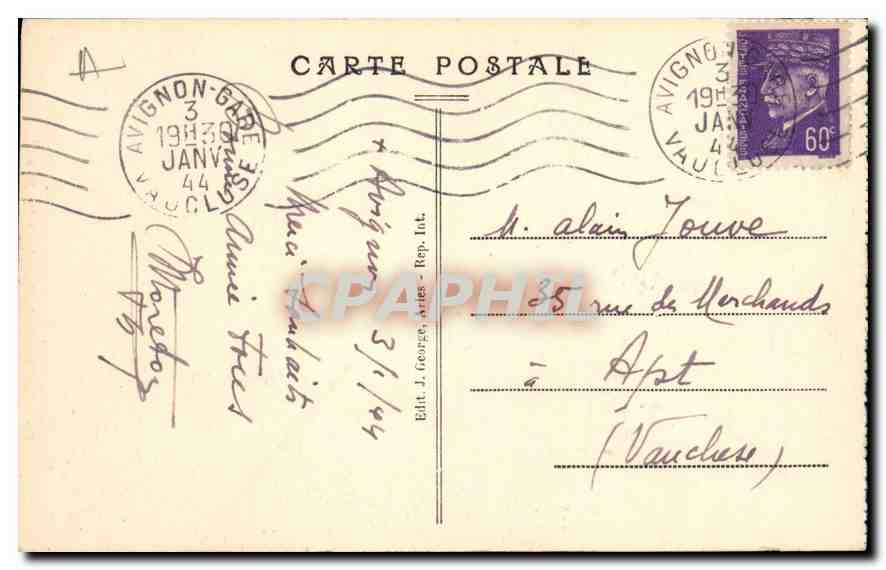 CARTE POSTALE
AVIGNON-GARE
3
19H30
JANV
44
VAUCLUSE
AVIGNON
3
19H3
JANV
44
VAUCLU
60c
+ Avignon 3/1/44
Merci Souhaits
Bonne Année tous
Edit. J. George, Arles - Rep. Int.
M. Alain Jouve
35 rue des Marchands
à Apt
(Vaucluse)
CPAPHIL